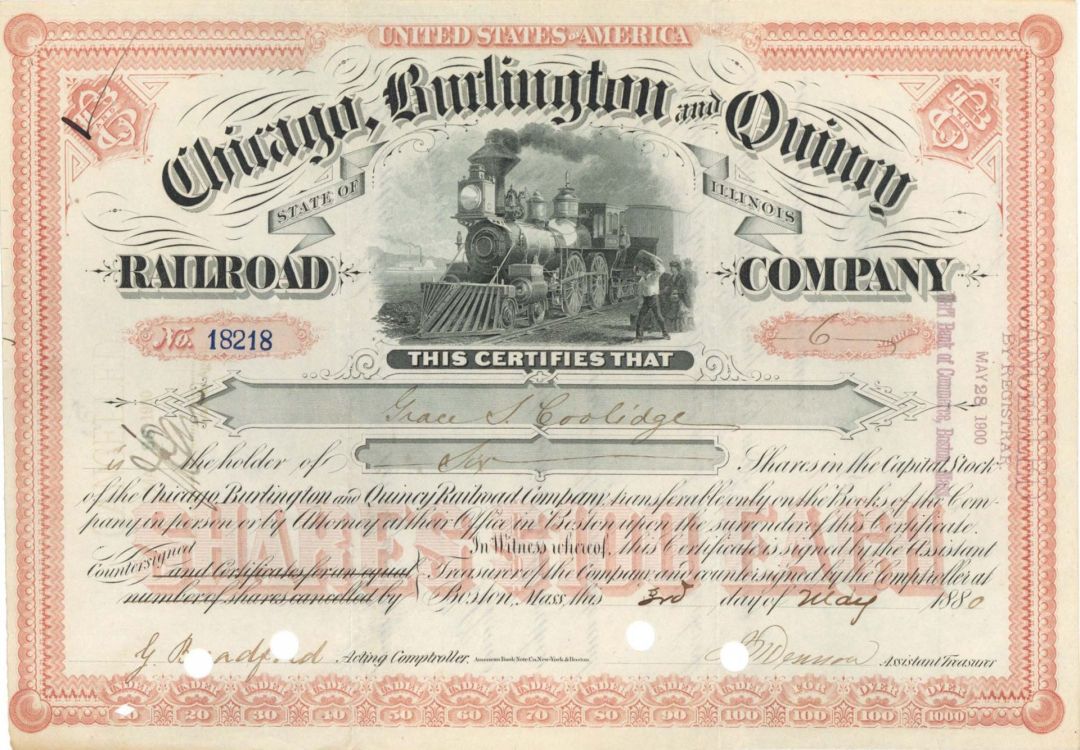 UNITED STATES OF AMERICA
Chicago, Burlington and Quincy
STATE OF ILLINOIS
RAILROAD COMPANY
No. 18218
6 Shares
THIS CERTIFIES THAT
Grace S. Coolidge
is the holder of Six Shares in the Capital Stock
of the Chicago Burlington and Quincy Railroad Company, transferable only on the Books of the Com-
pany in person or by Attorney at their Office in Boston upon the surrender of this Certificate.
SHARES $100 EACH
In Witness whereof, this Certificate is signed by the Assistant
Treasurer of the Company and countersigned by the Comptroller at
Boston, Mass, this 3rd day of May 1880
Countersigned
and Certificates for an equal
number of shares cancelled by
G Bradford Acting Comptroller. American Bank Note Co. New-York & Boston. Assistant Treasurer
Bank of Commerce, Boston
MAY 28 1900
BY REGISTRAR
UNDER UNDER UNDER UNDER UNDER UNDER UNDER UNDER UNDER UNDER FOR OVER OVER
10 20 30 40 50 60 70 80 90 100 100 100 1000